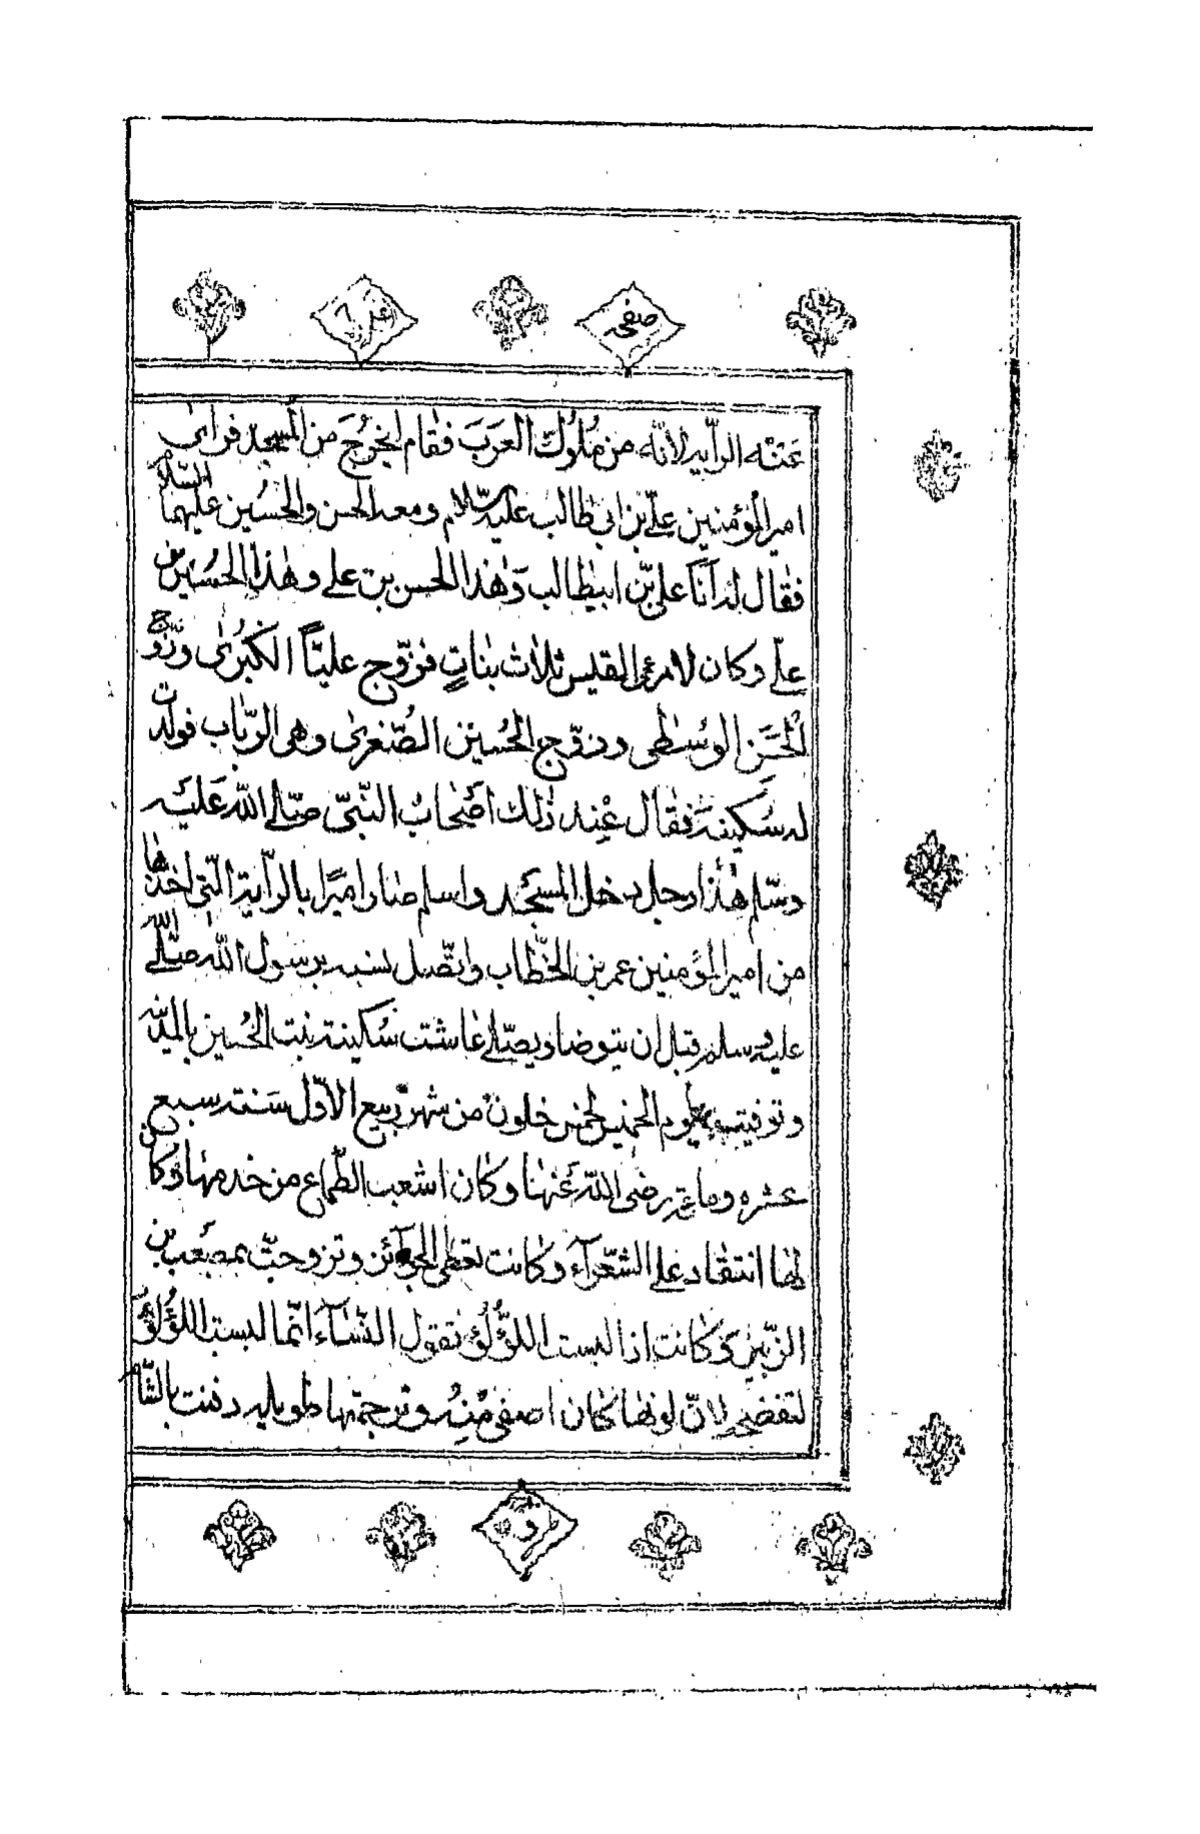 صفحه
عنه الرّايه لانّه من مُلُوك العَرَبَ فقام ليخرُجَ من المسجد فرأى
امير المؤمنين علىّ بن ابى طالب عليه السّلام ومعه الحسن والحسُين عليهما السّلام
فقال له اَنَا علىّ بن ابيطالب وَهٰذا الحسن بن على وهٰذا الحسُين بن
علىّ وكان لامرء القيس ثلاث بنٰاتٍ فزوّج عليّاً الكُبرىٰ وزوّج
الحسَن الوسُطى وزوّج الحُسين الصُّغرىٰ وهى الربّاب فولدت
له سُكينةَ فقال عِند ذٰلك اَصْحابُ النّبىّ صلّى اللّه عَليَه
وسّلم هٰذا رجل دخل المسجَد واسلم صار اميرًا بالرّاية الّتى اخذها
من امير المؤمنين عمر بن الخطّاب واتّصل نسبه برسول اللّه صلّى اللّه
عليه وسلم قبل ان يتوضا ويصلّى عاشت سُكينة بنت الحُسين بالمدينة
وتوفيت يوم الخميس لخمس خلون من شهر ربيع الاوّل سَنة سبع
عشره ومائة رضى اللّه عَنها وكان اشعب الطّماع من خدمها وكان
لها انتقاد على الشّعرآء وكانت تعطى الجوآئز وتزوجت بمصعب بن
الزّبير وكانت اذا لبست اللّؤلُؤ تقول النّسَآء انّما لبست اللؤلؤ
لتفضحه لانّ لونها كان اصفى مِنه وترجمتها طويله دفنت بالشّام